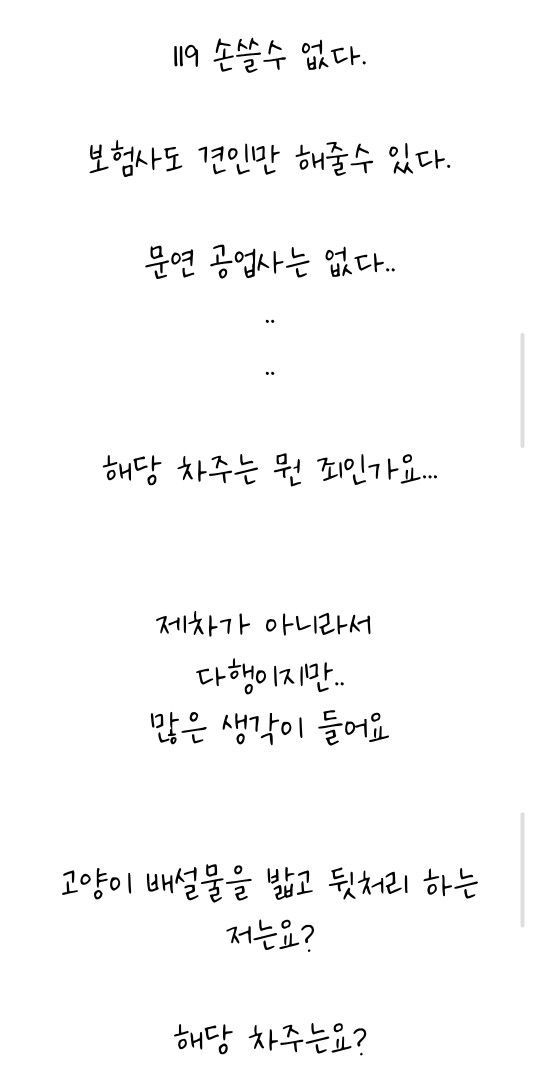 119 손쓸수 없다.
보험사도 견인만 해줄수 있다.
문연 공업사는 없다..
..
..
해당 차주는 뭔 죄인가요...
제차가 아니라서
다행이지만..
많은 생각이 들어요
고양이 배설물을 밟고 뒷처리 하는
저는요?
해당 차주는요?